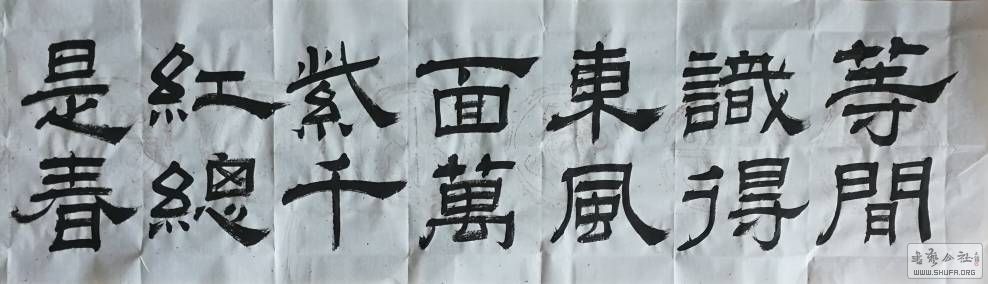 等閒
識得
東風
面萬
紫千
紅總
是春
書藝公社
WWW.SHUFA.ORG